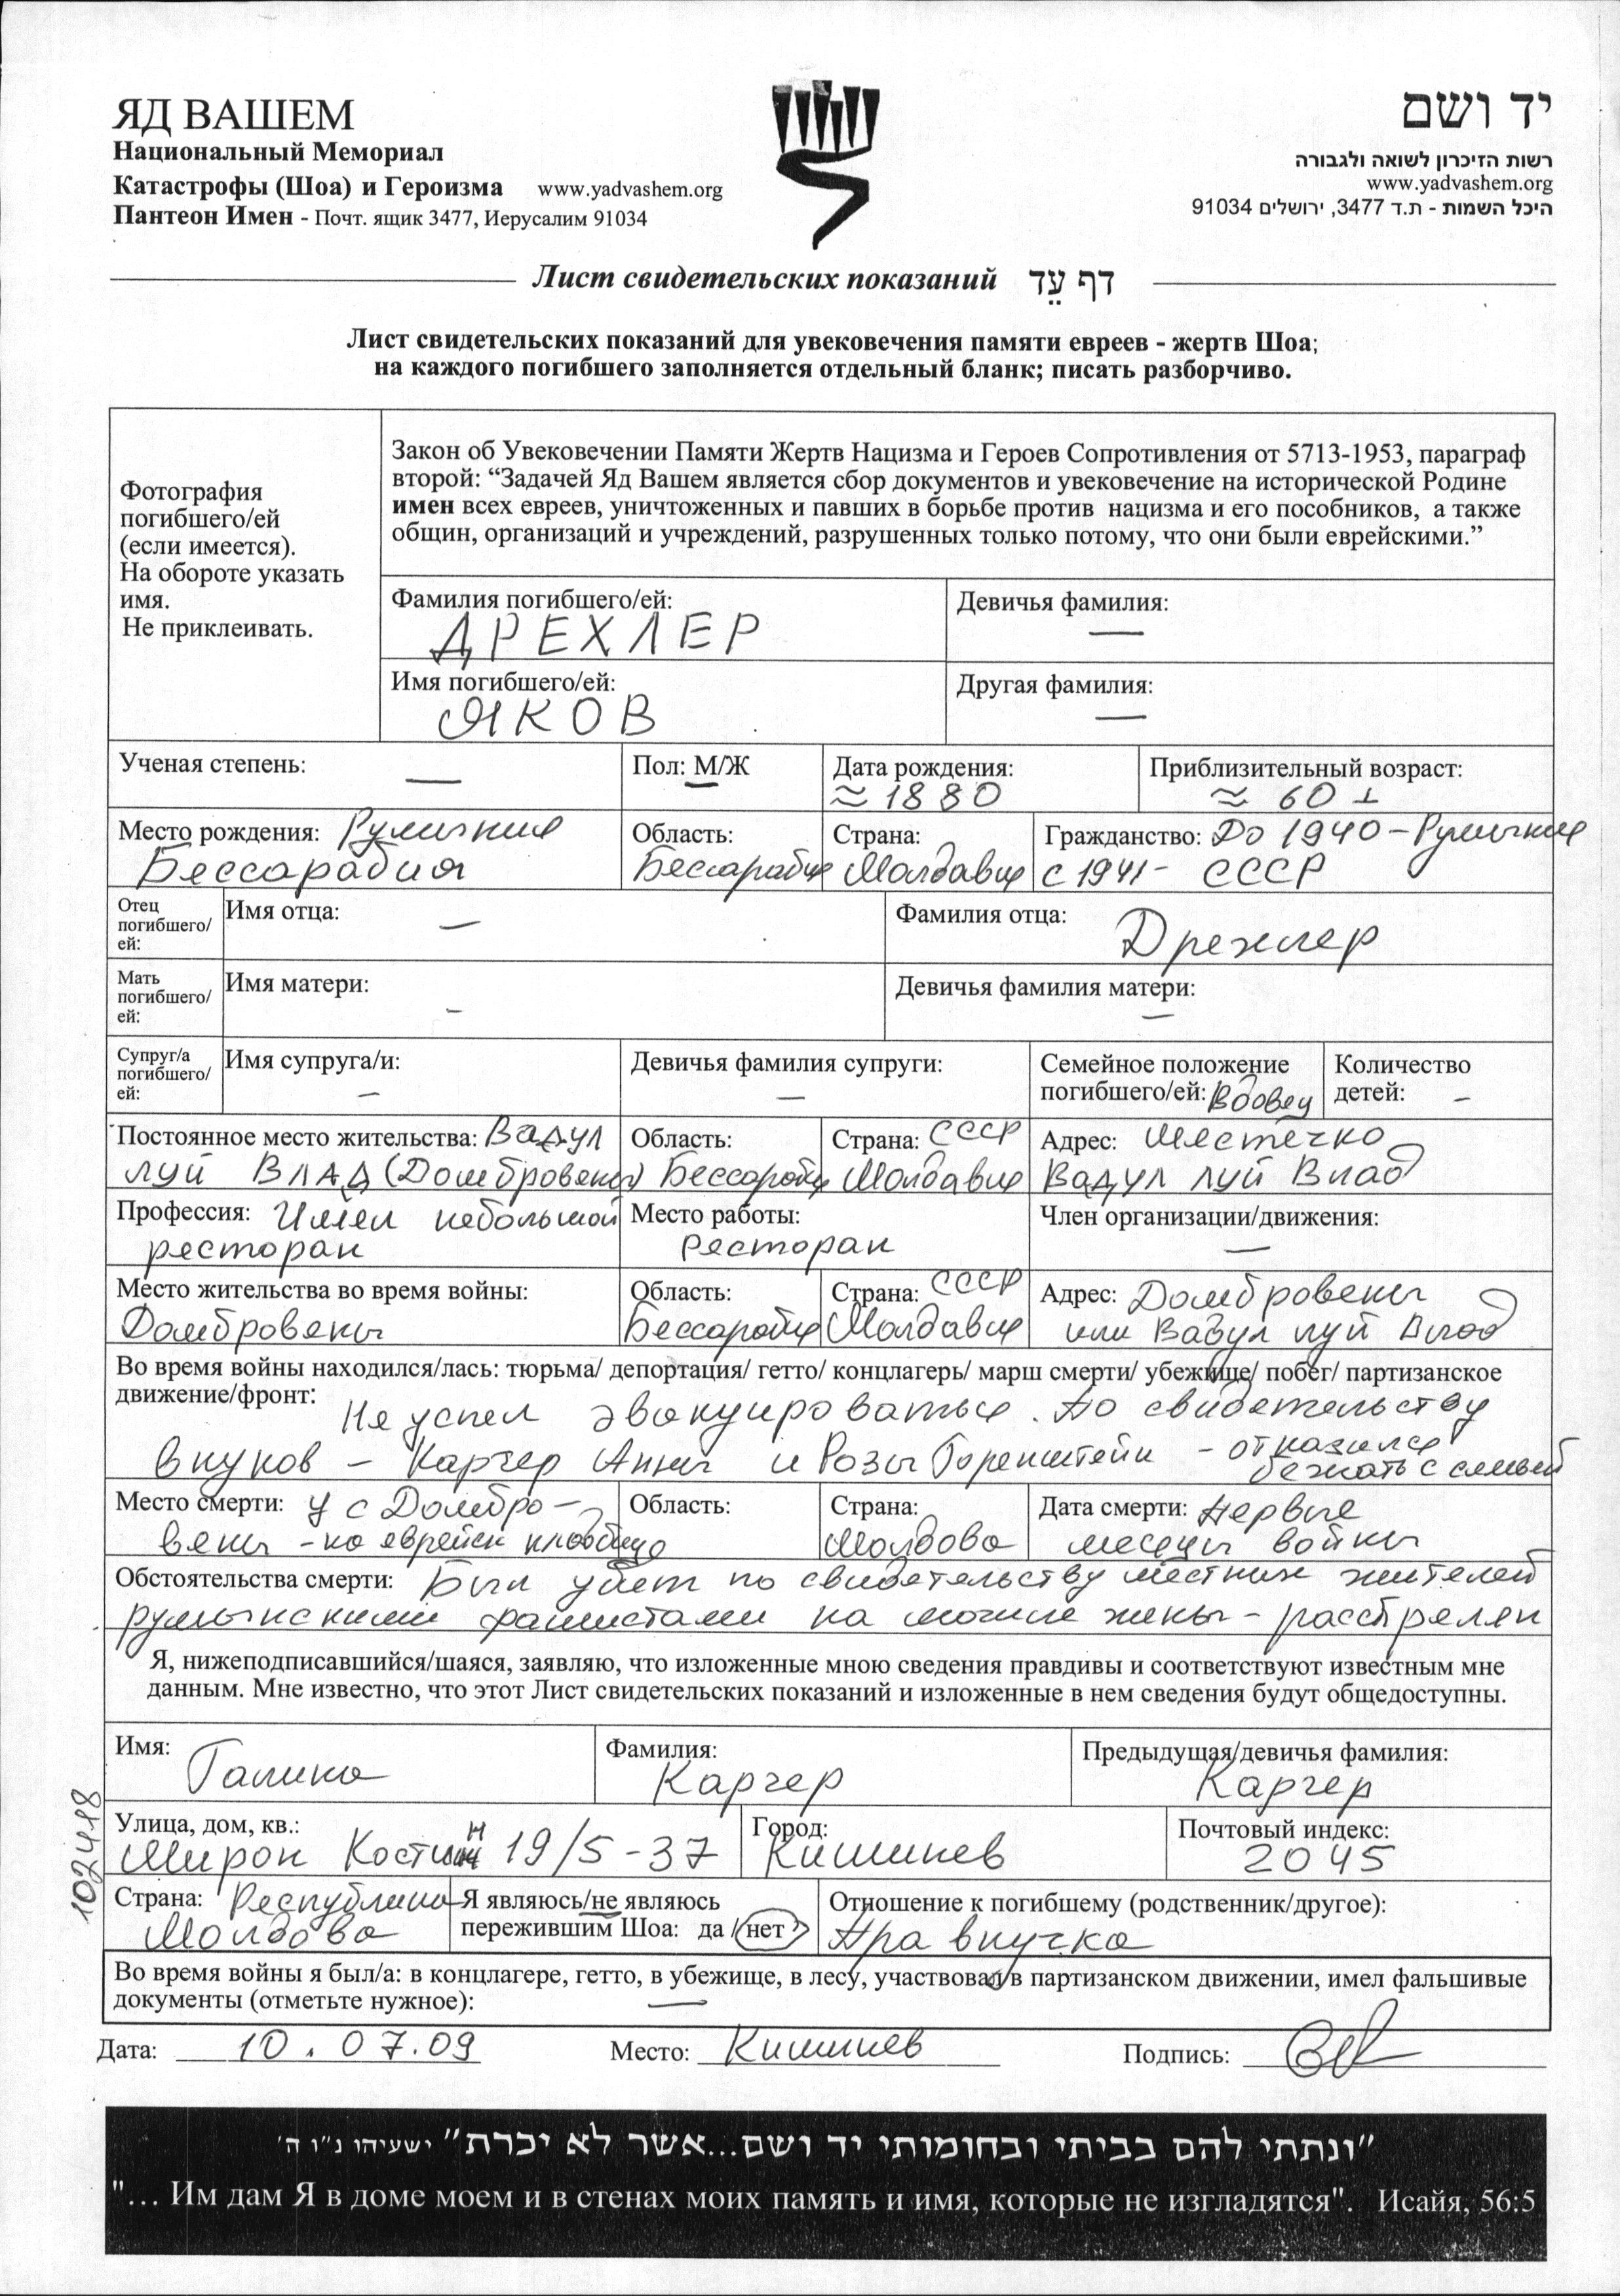 ЯД ВАШЕМ
Национальный Мемориал
Катастрофы (Шоа) и Героизма www.yadvashem.org
Пантеон Имен - Почт. ящик 3477, Иерусалим 91034
יד ושם
רשות הזיכרון לשואה ולגבורה
www.yadvashem.org
היכל השמות - ת.ד 3477, ירושלים 91034
Лист свидетельских показаний דף עֵד
Лист свидетельских показаний для увековечения памяти евреев - жертв Шоа;
на каждого погибшего заполняется отдельный бланк; писать разборчиво.
Фотография
погибшего/ей
(если имеется).
На обороте указать
имя.
Не приклеивать.
Закон об Увековечении Памяти Жертв Нацизма и Героев Сопротивления от 5713-1953, параграф
второй: “Задачей Яд Вашем является сбор документов и увековечение на исторической Родине
имен всех евреев, уничтоженных и павших в борьбе против нацизма и его пособников, а также
общин, организаций и учреждений, разрушенных только потому, что они были еврейскими.”
Фамилия погибшего/ей: Девичья фамилия:
ДРЕХЛЕР —
Имя погибшего/ей: Другая фамилия:
ЯКОВ —
Ученая степень: — Пол: М/Ж Дата рождения: Приблизительный возраст:
≈ 1880 ≈ 60 ±
Место рождения: Румыния Область: Страна: Гражданство: До 1940 - Румыния
Бессарабия Бессарабия Молдавия с 1941 - СССР
Отец
погибшего/
ей:
Имя отца: — Фамилия отца: Дрехлер
Мать
погибшего/
ей:
Имя матери: - Девичья фамилия матери: —
Супруг/а
погибшего/
ей:
Имя супруга/и: — Девичья фамилия супруги: — Семейное положение Количество
погибшего/ей: Вдовец детей: -
Постоянное место жительства: Вадул Область: Страна: СССР Адрес: Местечко
луй ВЛАД (Домбровены) Бессарабия Молдавия Вадул луй Влад
Профессия: Имел небольшой Место работы: Член организации/движения:
ресторан ресторан —
Место жительства во время войны: Область: Страна: СССР Адрес: Домбровены
Домбровены Бессарабия Молдавия или Вадул луй Влад
Во время войны находился/лась: тюрьма/ депортация/ гетто/ концлагерь/ марш смерти/ убежище/ побег/ партизанское
движение/фронт: Не успел эвакуироваться. По свидетельству
внуков - Карчер Анны и Розы Горенштейн - отказался
бежать с семьей
Место смерти: у с Домбро- Область: Страна: Дата смерти: Первые
вены - на еврейск кладбище Молдова месяцы войны
Обстоятельства смерти: Был убит по свидетельству местных жителей
румынскими фашистами на могиле жены - расстрелян
Я, нижеподписавшийся/шаяся, заявляю, что изложенные мною сведения правдивы и соответствуют известным мне
данным. Мне известно, что этот Лист свидетельских показаний и изложенные в нем сведения будут общедоступны.
Имя: Фамилия: Предыдущая/девичья фамилия:
Галина Карчер Карчер
Улица, дом, кв.: Город: Почтовый индекс:
Мирон Костин 19/5-37 Кишинев 2045
Страна: Республика Я являюсь/не являюсь Отношение к погибшему (родственник/другое):
Молдова пережившим Шоа: да / нет Пра внучка
Во время войны я был/а: в концлагере, гетто, в убежище, в лесу, участвовал в партизанском движении, имел фальшивые
документы (отметьте нужное): —
Дата: 10.07.09 Место: Кишинев Подпись:
102418
"ונתתי להם בביתי ובחומותי יד ושם...אשר לא יכרת" ישעיהו נ"ו ה'
"… Им дам Я в доме моем и в стенах моих память и имя, которые не изгладятся". Исайя, 56:5